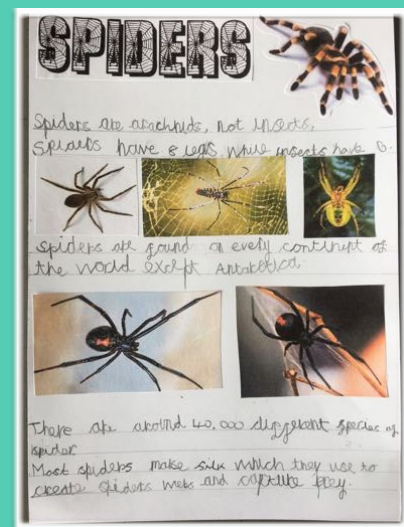 SPIDERS
Spiders are arachnids, not insects.
Spiders have 8 legs, while insects have 6.
Spiders are found on every continent of
the world except Antarctica
There are around 40,000 different species of
spider
Most spiders make silk which they use to
create spiders webs and capture prey.